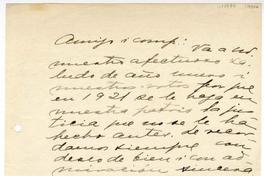 Amigo i comp: Va a Ud.
nuestro afectuoso sa-
ludo de año nuevo i
nuestros votos por que
en 1921 se le haga en
nuestra patria la jus-
ticia que no se le ha
hecho antes. Le recor-
damos siempre con
deseo de bien i con ad-
miración sincera